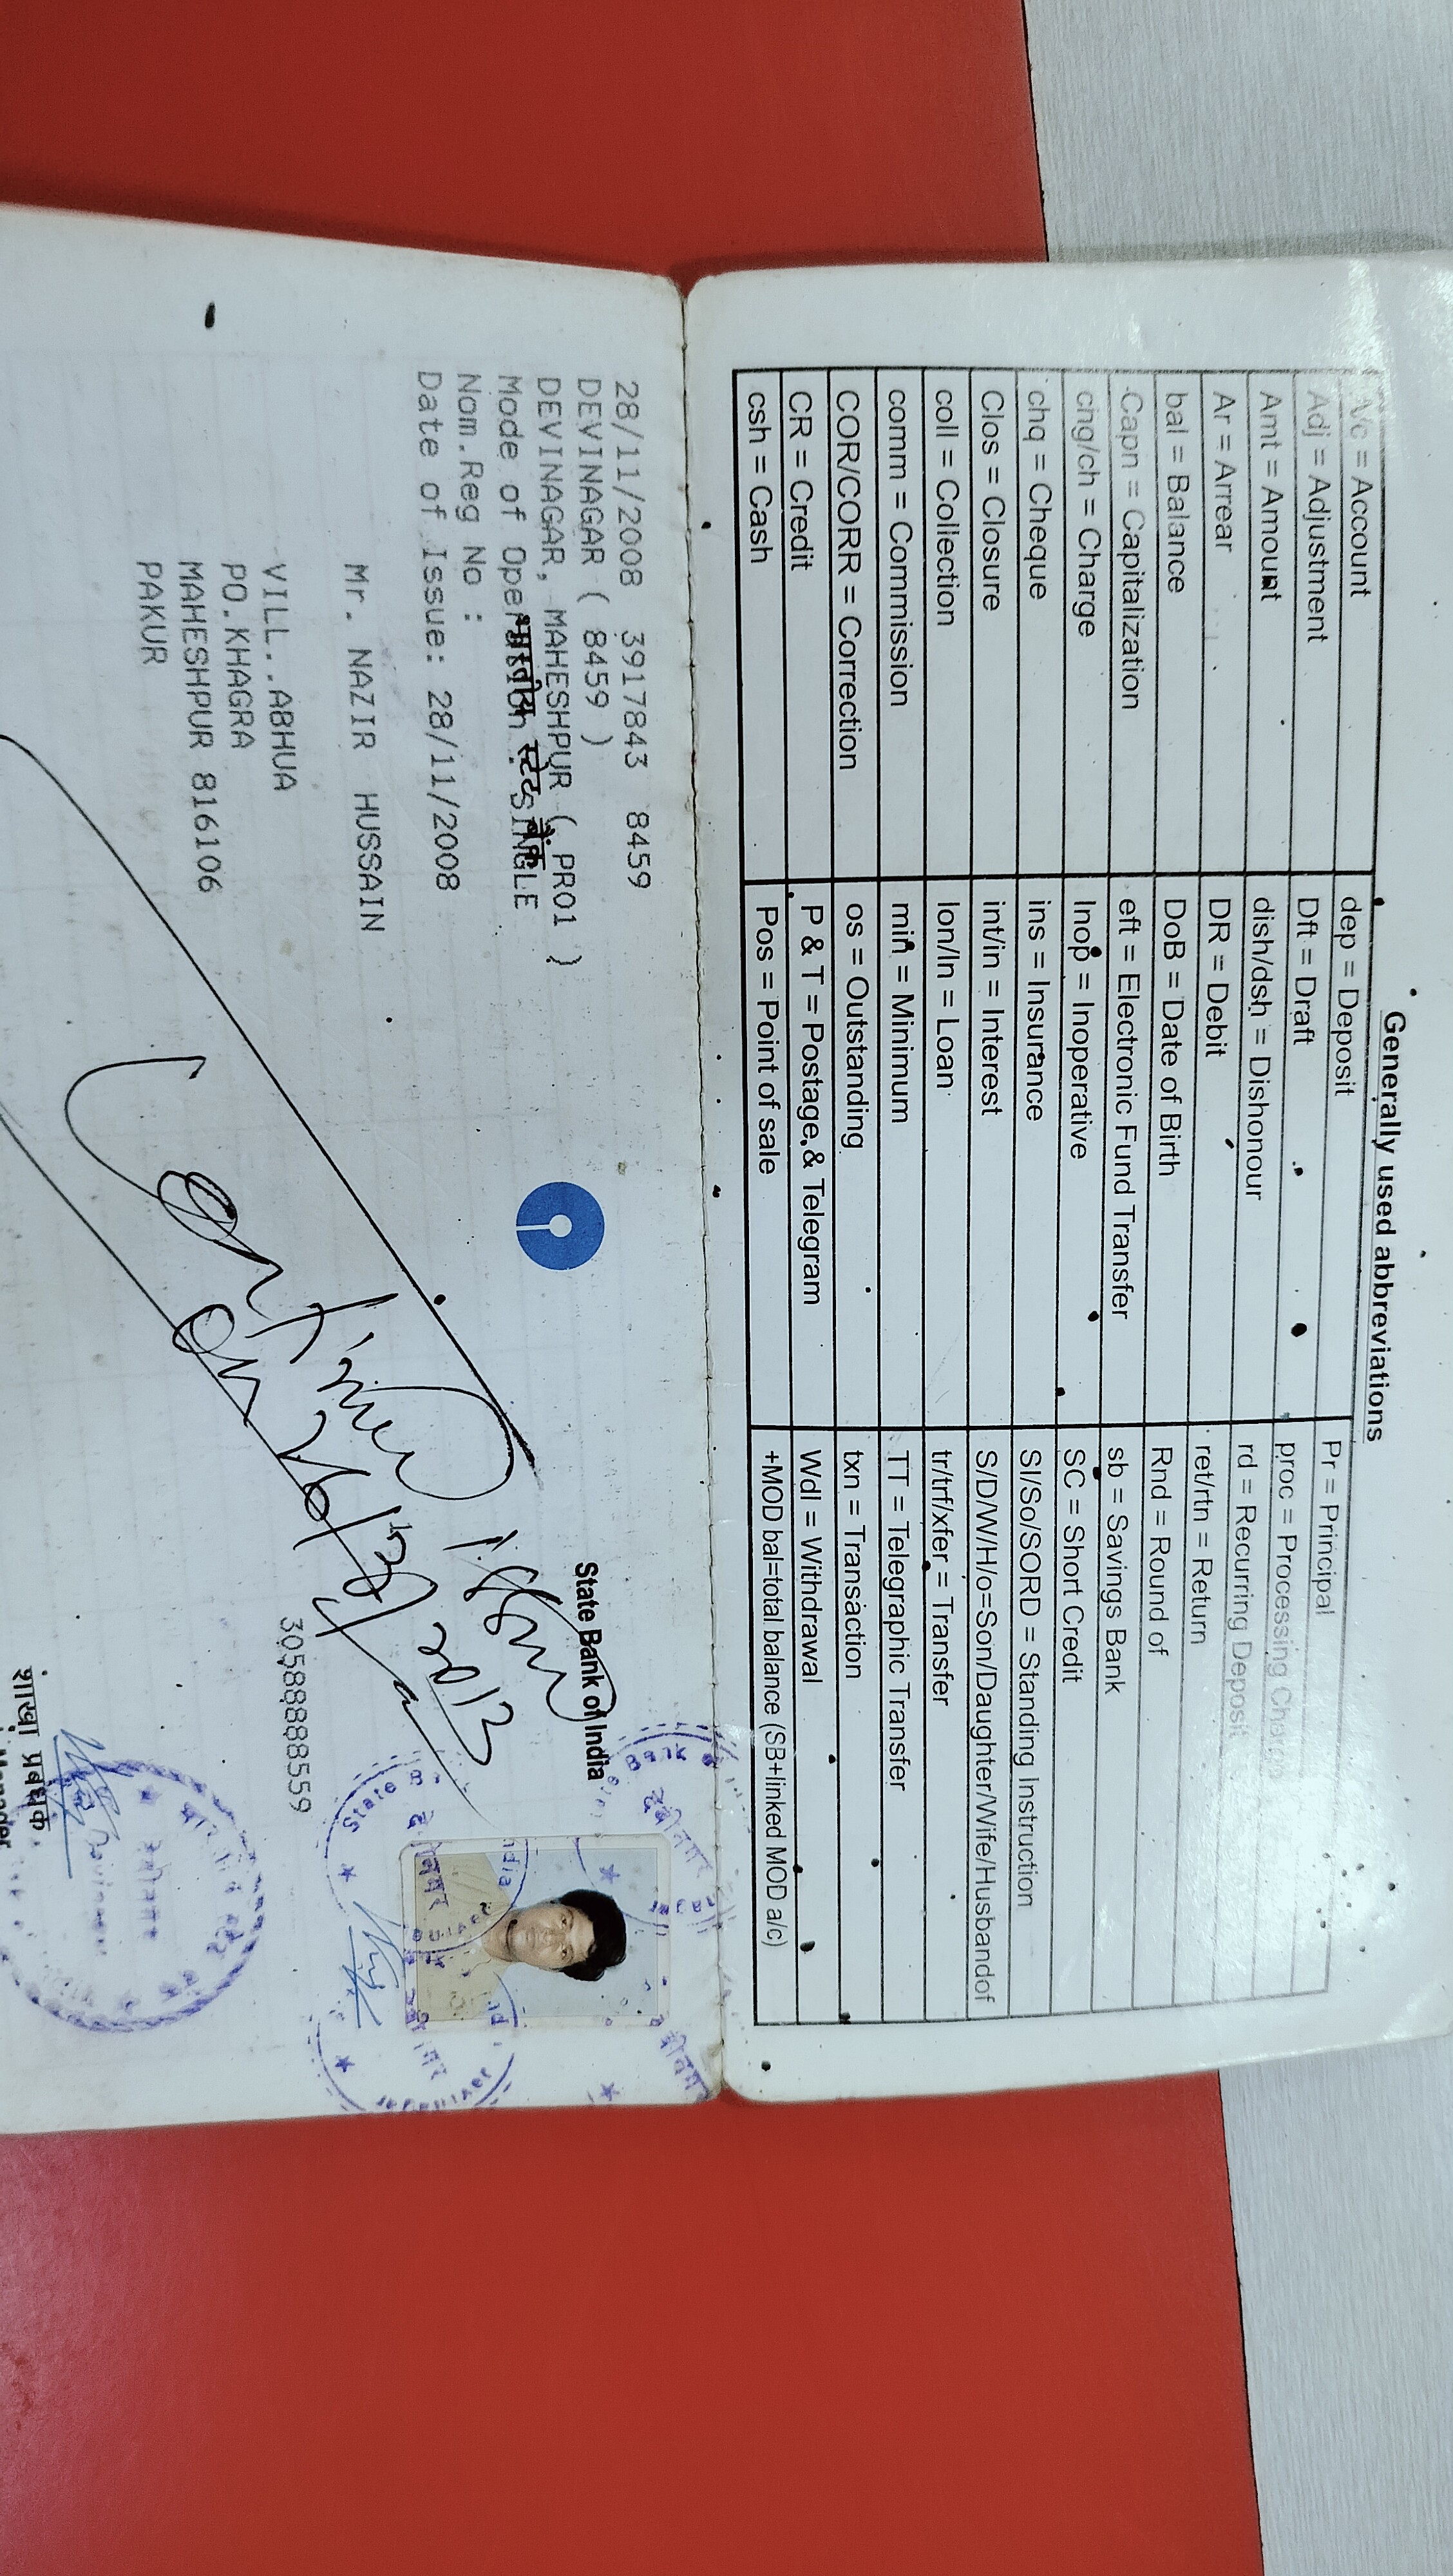 Generally used abbreviations
A/c = Account
dep = Deposit
Pr = Principal
Adj = Adjustment
Dft = Draft
proc = Processing Charge
Amt = Amount
dish/dsh = Dishonour
rd = Recurring Deposit
Ar = Arrear
DR = Debit
ret/rtn = Return
bal = Balance
DoB = Date of Birth
Rnd = Round of
Capn = Capitalization
eft = Electronic Fund Transfer
sb = Savings Bank
chg/ch = Charge
Inop = Inoperative
SC = Short Credit
chq = Cheque
ins = Insurance
SI/So/SORD = Standing Instruction
Clos = Closure
int/in = Interest
S/D/W/H/o=Son/Daughter/Wife/Husbandof
coll = Collection
lon/ln = Loan
tr/trf/xfer = Transfer
comm = Commission
min = Minimum
TT = Telegraphic Transfer
COR/CORR = Correction
os = Outstanding
txn = Transaction
CR = Credit
P & T = Postage & Telegram
Wdl = Withdrawal
csh = Cash
Pos = Point of sale
+MOD bal=total balance (SB+linked MOD a/c)
28/11/2008 3917843 8459
DEVINAGAR ( 8459 )
DEVINAGAR, MAHESHPUR ( PR01 )
Mode of Operation : SINGLE
भारतीय स्टेट बैंक
State Bank of India
Nom.Reg No :
Date of Issue: 28/11/2008
Mr. NAZIR HUSSAIN
30588888559
VILL..ABHUA
PO.KHAGRA
MAHESHPUR 816106
PAKUR
Continue
on 26/3/2013
शाखा प्रबंधक